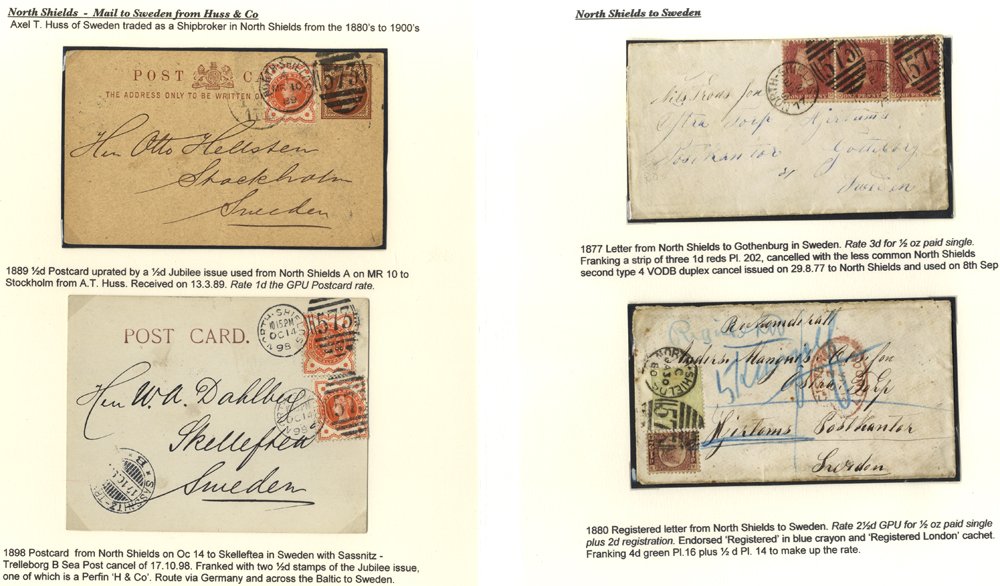 North Shields - Mail to Sweden from Huss & Co
Axel T. Huss of Sweden traded as a Shipbroker in North Shields from the 1880's to 1900's
POST CA
THE ADDRESS ONLY TO BE WRITTEN ON
NORTH-SHIE
MR 10
89
573
Hrn Otto Hellsten
Stockholm
Sweden
1889 ½d Postcard uprated by a ½d Jubilee issue used from North Shields A on MR 10 to
Stockholm from A.T. Huss. Received on 13.3.89. Rate 1d the GPU Postcard rate.
POST CARD.
NORTH-SHIELDS
10 15 PM
OC 14
98
573
OC 14
57
Hrn W.A. Dahlberg
Skelleftea
Sweden
SASSNITZ-TR
1898 Postcard from North Shields on Oc 14 to Skelleftea in Sweden with Sassnitz -
Trelleborg B Sea Post cancel of 17.10.98. Franked with two ½d stamps of the Jubilee issue,
one of which is a Perfin 'H & Co'. Route via Germany and across the Baltic to Sweden.
North Shields to Sweden
NORTH
77
573
573
Postkantor Gotteborg
Sweden
1877 Letter from North Shields to Gothenburg in Sweden. Rate 3d for ½ oz paid single.
Franking a strip of three 1d reds Pl. 202, cancelled with the less common North Shields
second type 4 VODB duplex cancel issued on 29.8.77 to North Shields and used on 8th Sep
Registered
NORTH-SHIELDS
C
JA 30
80
57
Postkantor
Sweden
1880 Registered letter from North Shields to Sweden. Rate 2½d GPU for ½ oz paid single
plus 2d registration. Endorsed 'Registered' in blue crayon and 'Registered London' cachet.
Franking 4d green Pl.16 plus ½ d Pl. 14 to make up the rate.